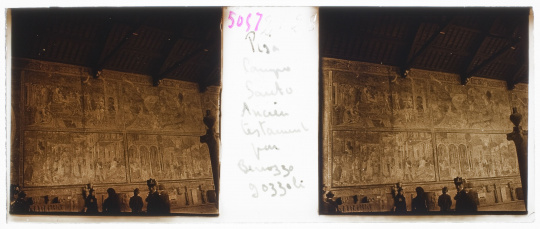 5057
Pisa
Campo
Santo
Ancien
testament
par
Benozzo
Gozzoli